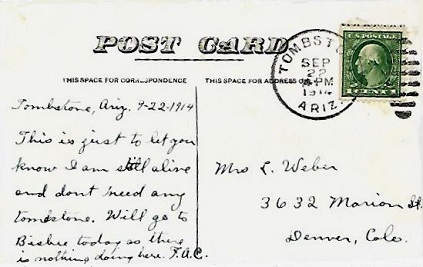 POST CARD
THIS SPACE FOR CORRESPONDENCE
THIS SPACE FOR ADDRESS ON
TOMBST
SEP
22
4 PM
1914
ARIZ.
U.S. POSTAGE
1 CENT 1
Tombstone, Ariz. 9-22-1914
This is just to let you
know I am still alive
and dont need any
tombstone. Will go to
Bisbee today as there
is nothing doing here. F.A.C.
Mrs L. Weber
3632 Marion St.
Denver, Colo.